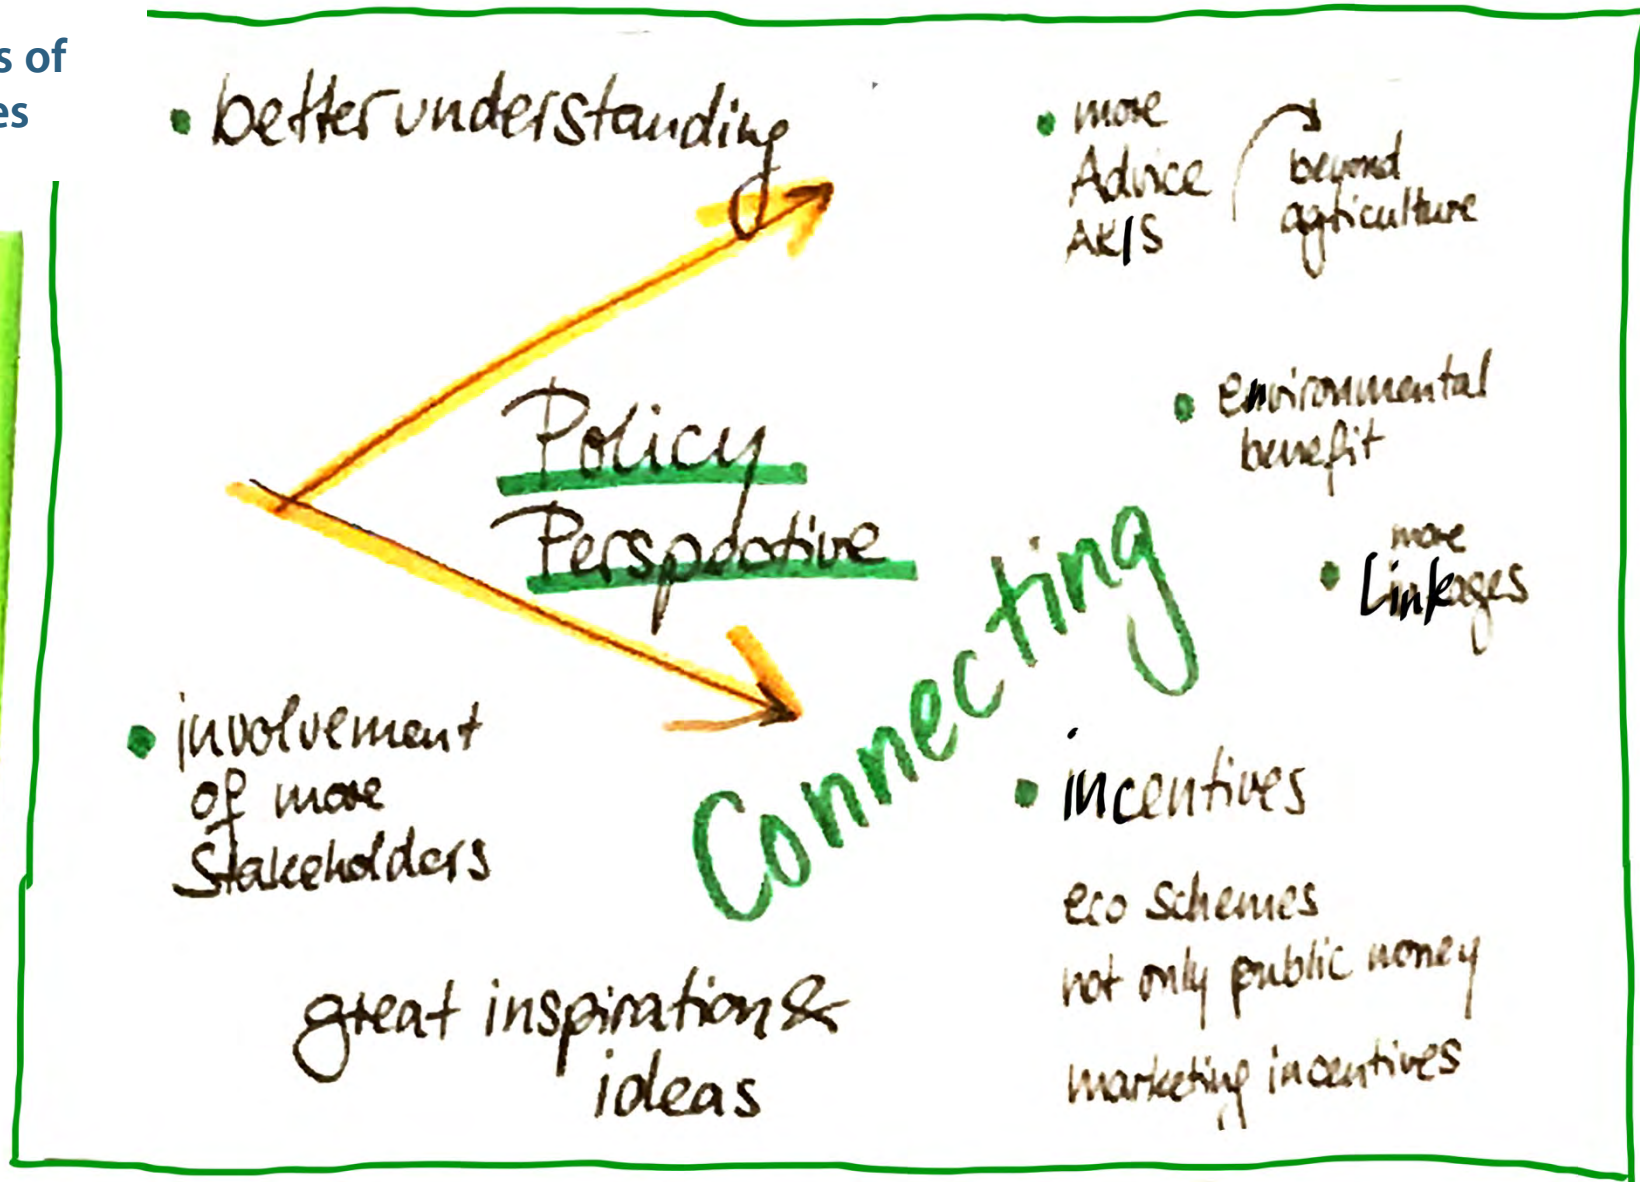 s of
es
• better understanding
• more
Advice
AKIS
beyond
agriculture
Policy
Perspective
• environmental
benefit
• more
Linkages
Connecting
• involvement
of more
Stakeholders
• incentives
eco schemes
not only public money
marketing incentives
great inspiration &
ideas